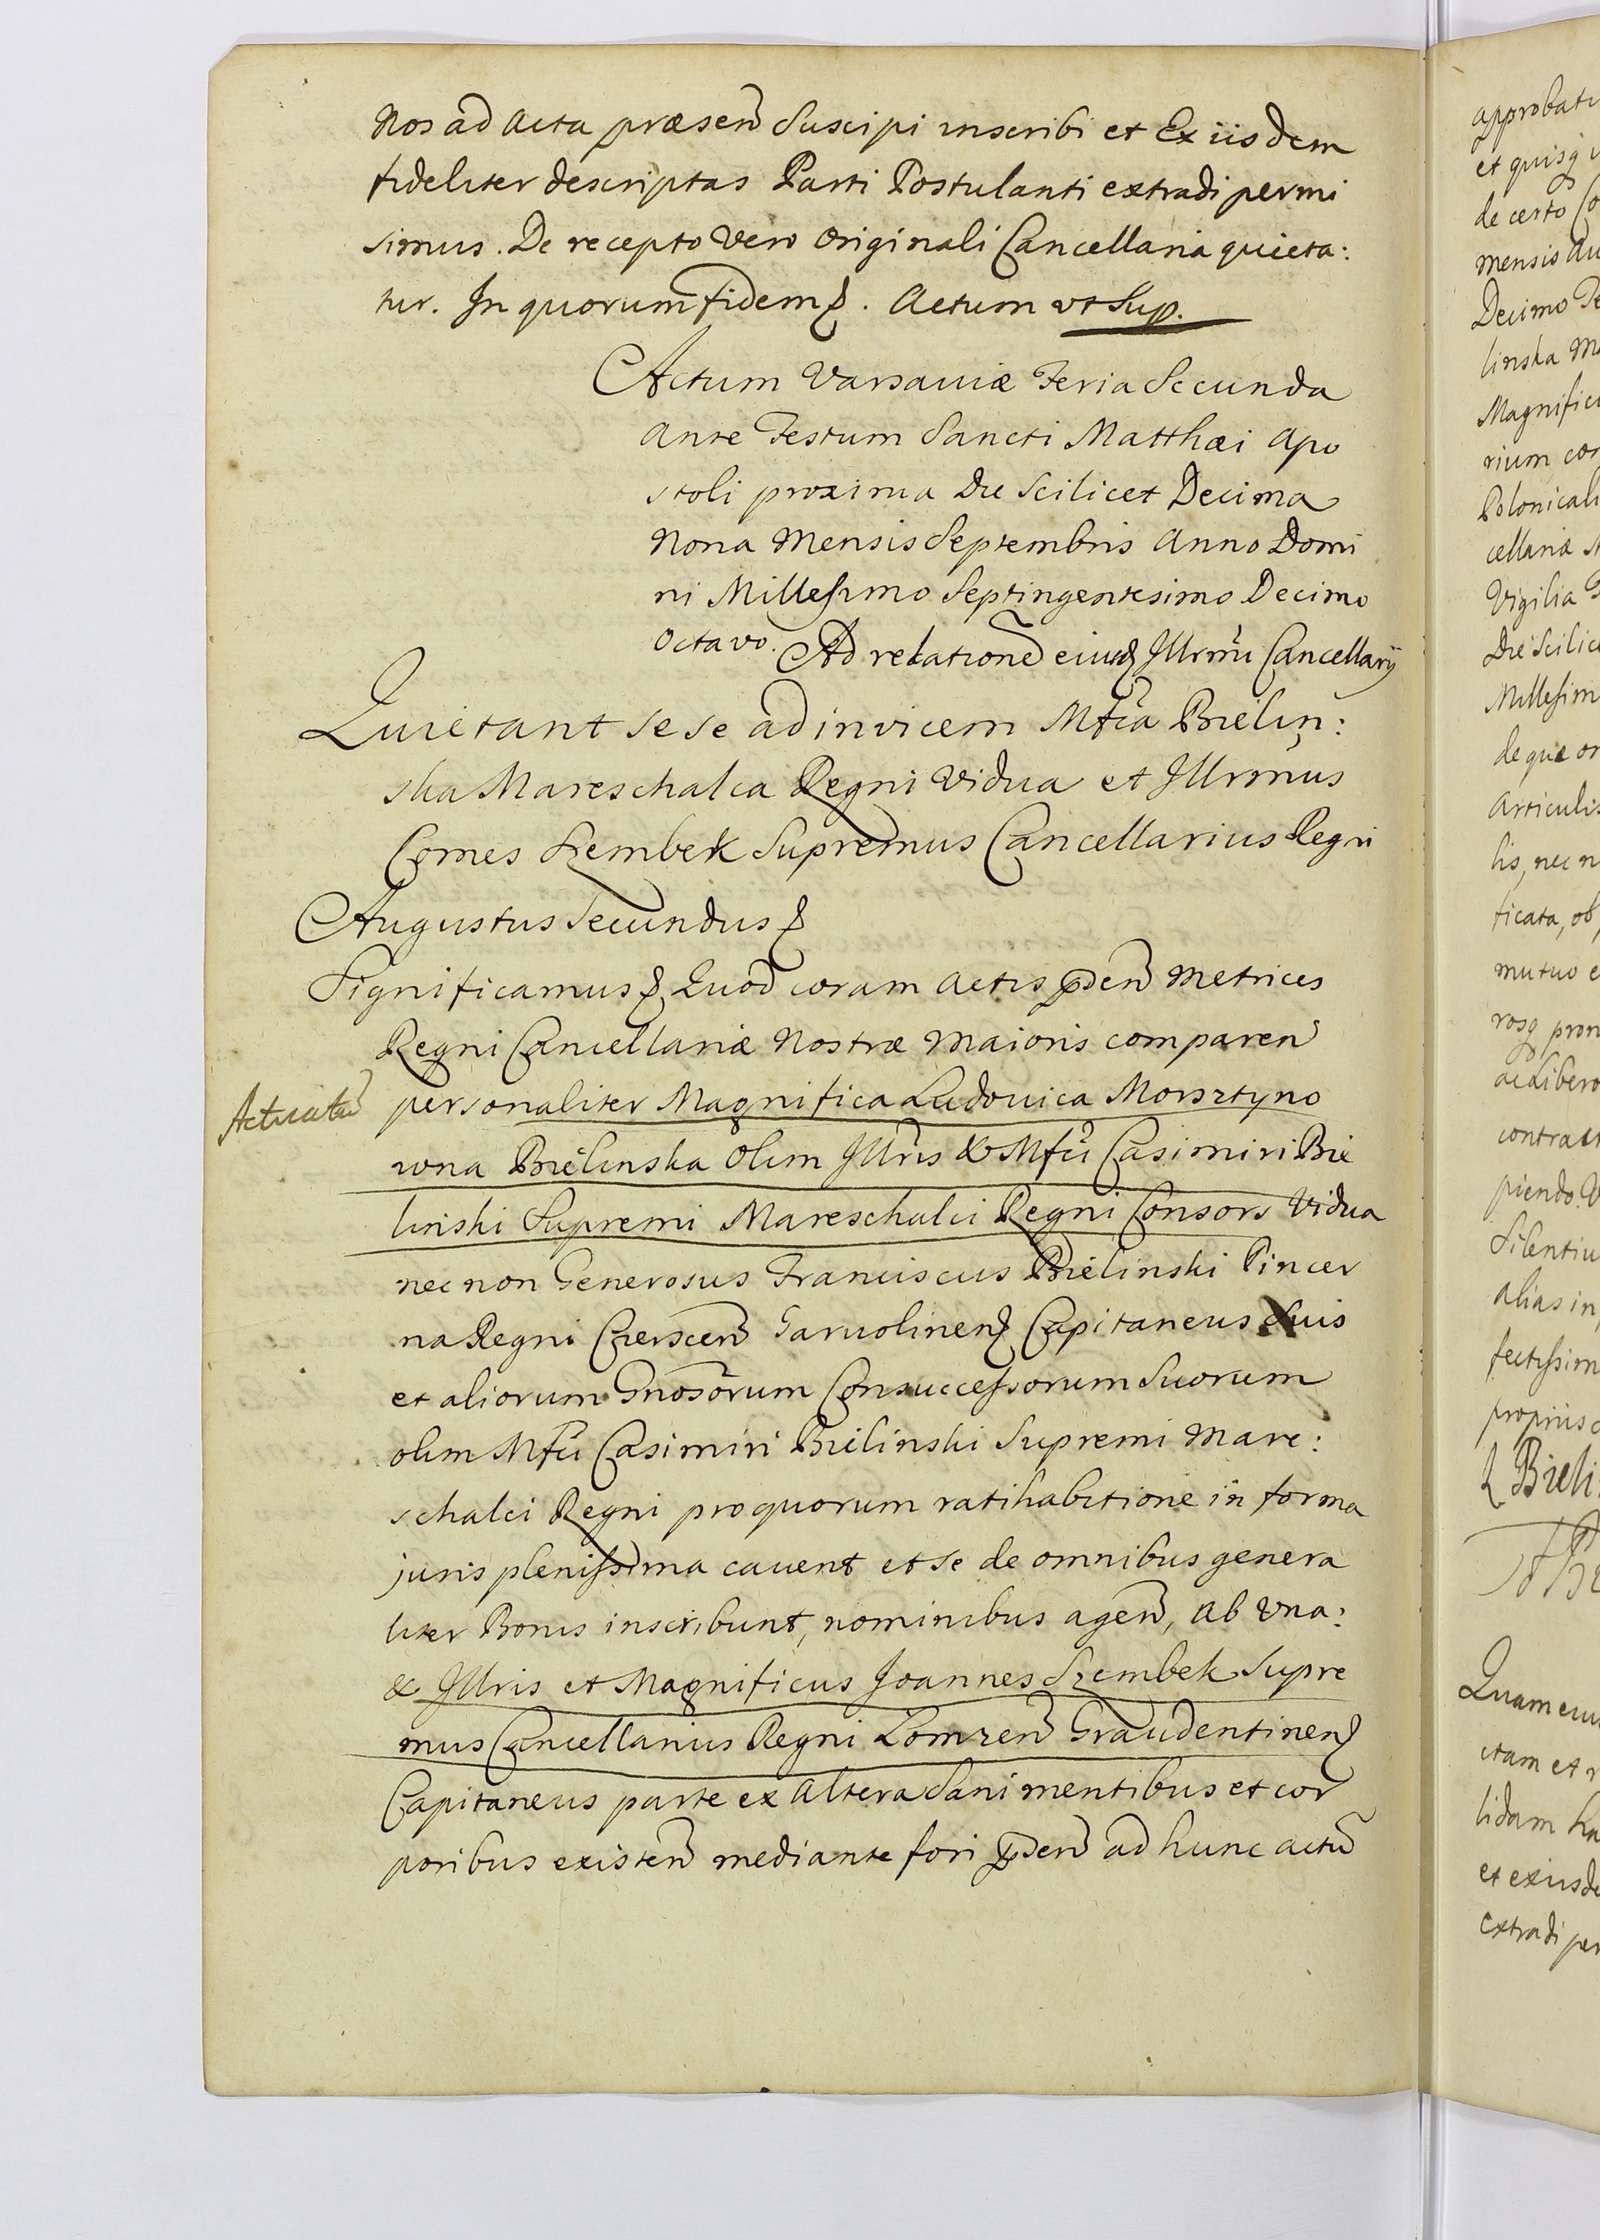 Nos ad Acta præsen Suscipi inscribi et Ex iisdem
fideliter descriptas Parti Postulanti extradi permi
simus. De recepto Vero Originali Cancellaria quieta:
tur. In quorum fidem. Actum vt Sup.
Actum Varsaviæ Feria Secunda
Ante Festum Sancti Matthæi Apo
stoli proxima Die Scilicet Decima
Nona Mensis Septembris Anno Domi
ni Millesimo Septingentesimo Decimo
Octavo. Ad relatione eiusd Illrmi Cancellarij
Quietant sese ad invicem Mfca Bielin:
ska Mareschalca Regni Vidua et Illrmus
Comes Szembek Supremus Cancellarius Regni
Augustus Secundus
Significamus Quod coram Actis pden Metrices
Regni Cancellariæ Nostræ Maioris comparen
Actuatu
personaliter Magnifica Ludovica Morsztyno
wna Bielinska Olim Illris & Mfci Casimiri Bie
linski Supremi Mareschalci Regni Consors Vidua
nec non Generosus Franciscus Bielinski Pincer
na Regni Czerscen Garvolinen Capitaneus Suis
et aliorum Gnosorum Consuccessorum Suorum
olim Mfci Casimiri Bielinski Supremi Mare:
schalci Regni pro quorum ratihabitione in forma
juris plenissima cavent et se de omnibus genera
liter Bonis inscribunt, nominibus agen, ab Vna:
& Illris et Magnificus Joannes Szembek Supre
mus Cancellarius Regni Lomzen Graudentinen
Capitaneus parte ex Altera Sani mentibus et cor
poribus existen mediante fori pden ad hunc actu
approbat
et quisq
de certo
mensis
Decimo
linska
Magnific
rium
Polonical
cellariæ
Vigilia
Die Scilic
Millesim
de qua
Articulis
lis, nec n
ficata, ob
mutuo
rosq pron
ac libero
contract
piendo.
Silentiu
Alias in
fectissim
propriis
L Bieli
Quam
itam et
lidam
et exiisd
Extradi per